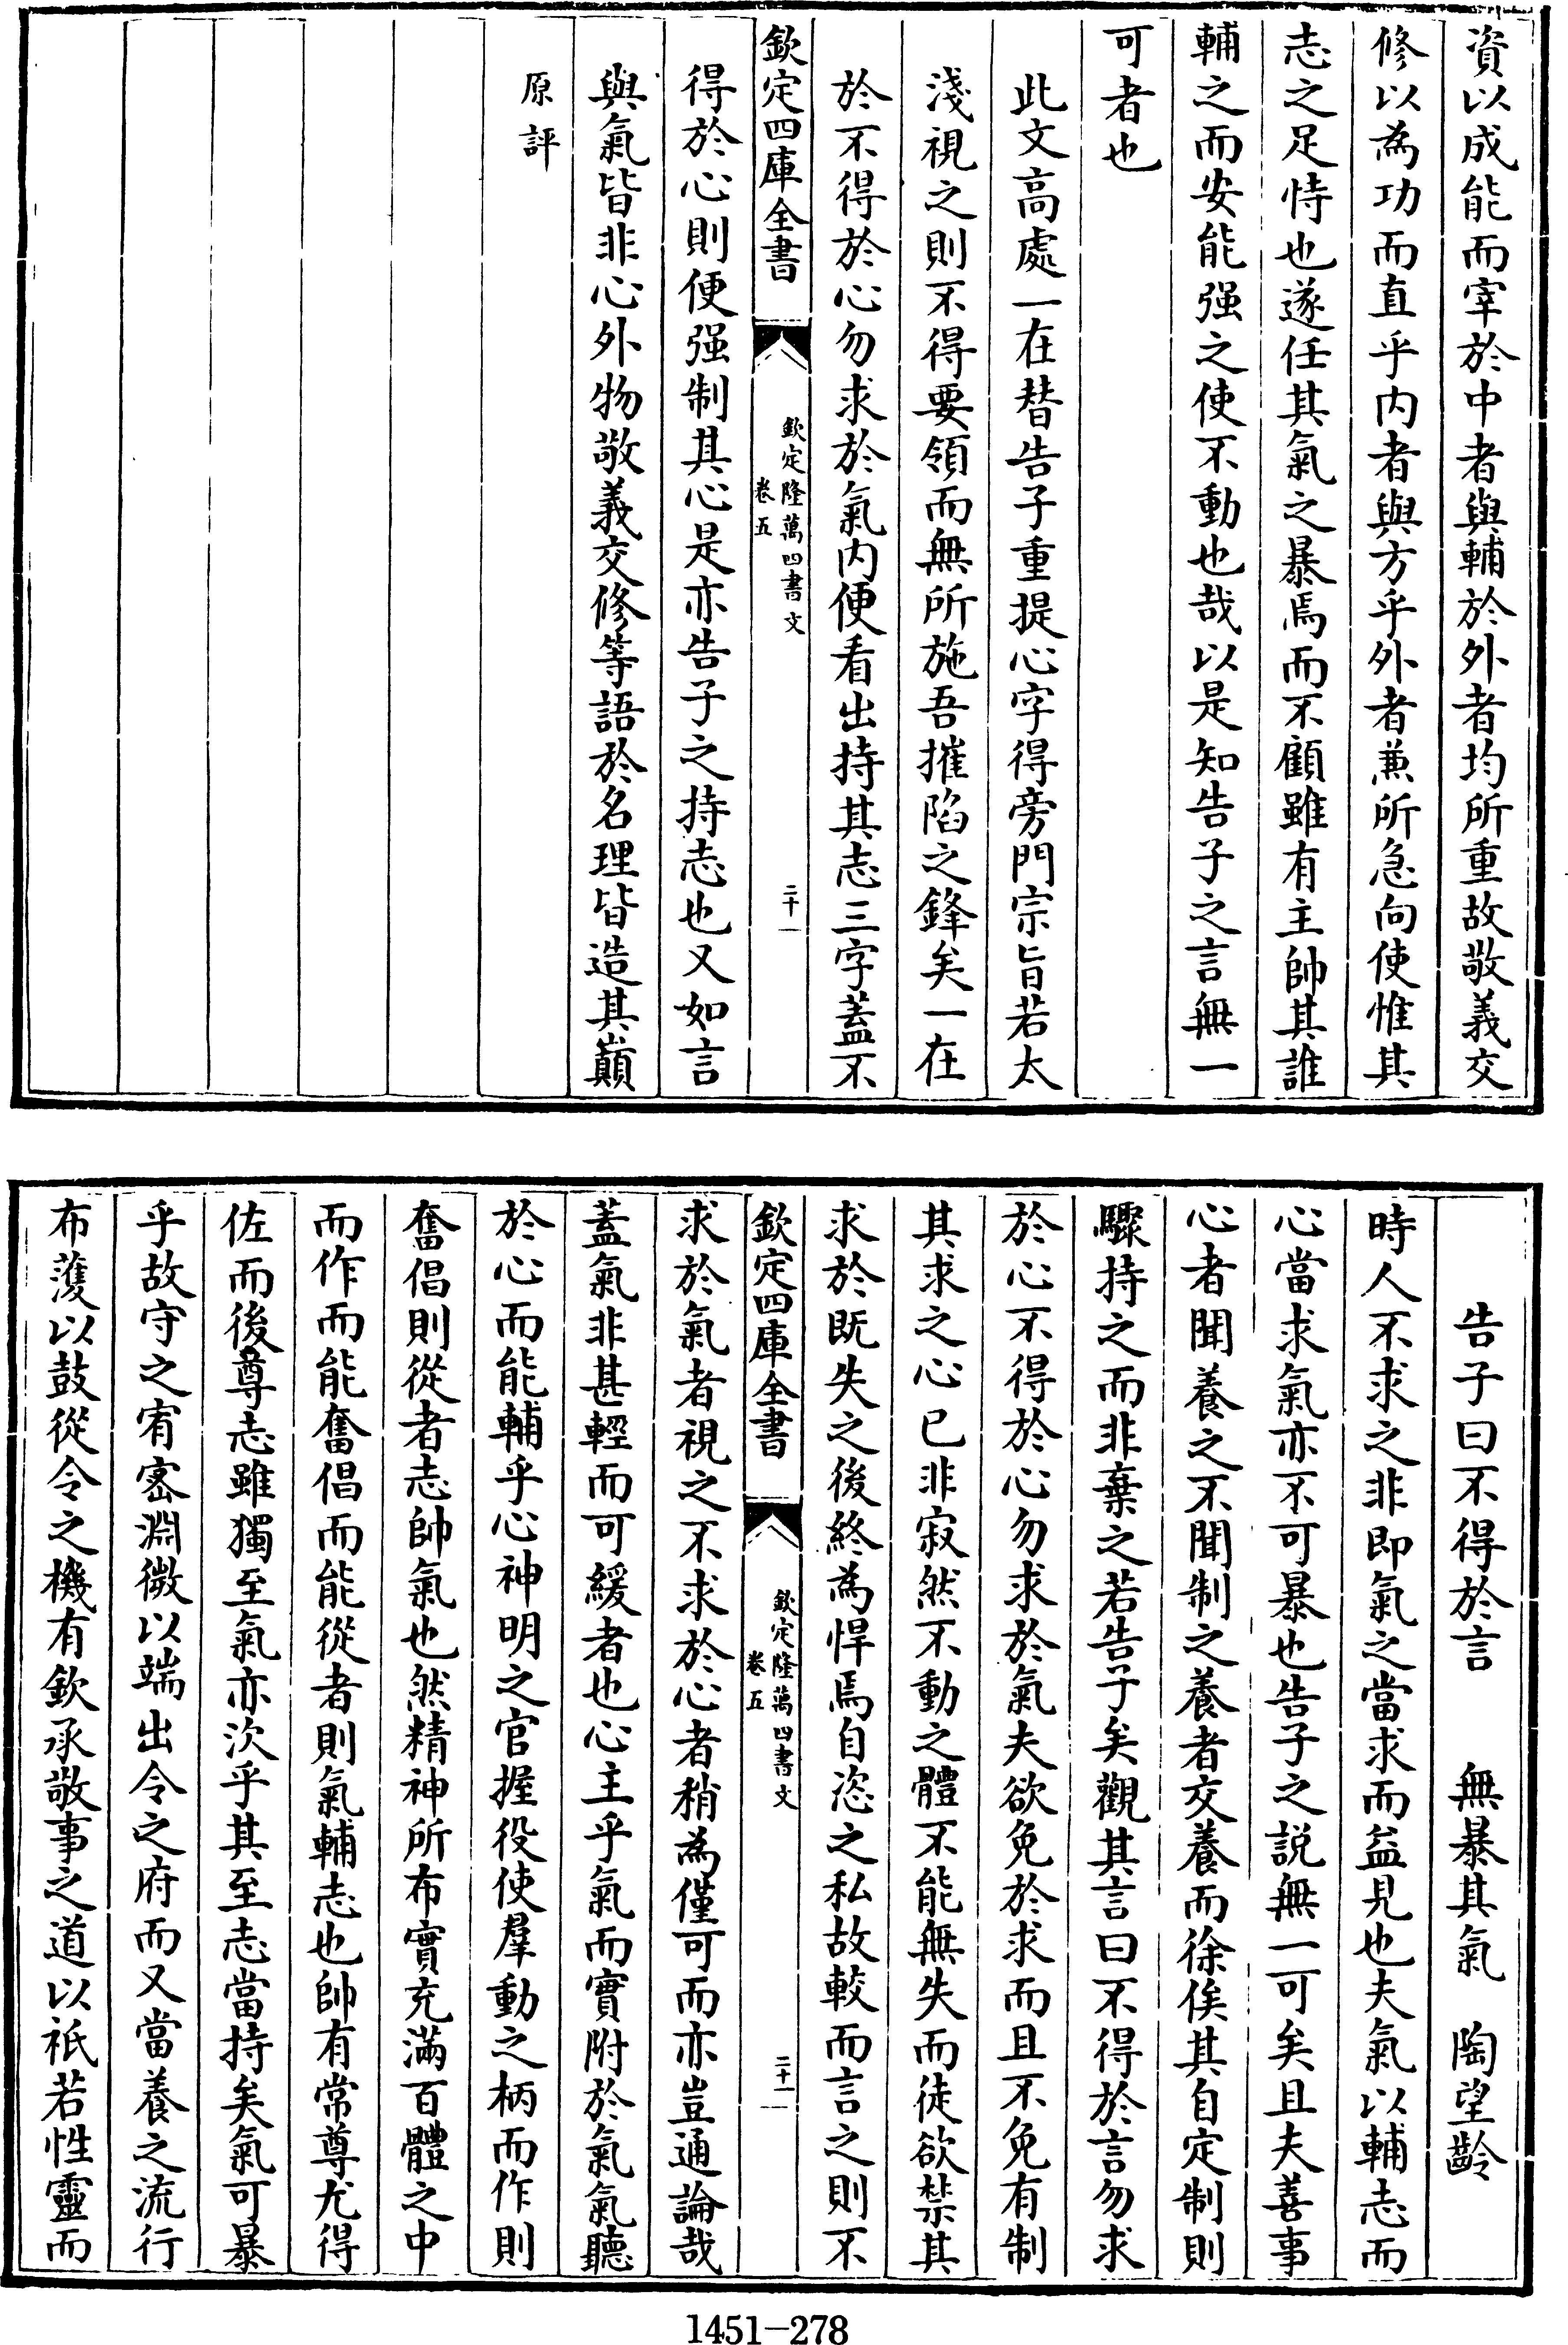 資以成能而宰於中者與輔於外者均所重故敬義交
修以為功而直乎内者與方乎外者兼所急向使惟其
志之足恃也遂任其氣之暴焉而不顧雖有主帥其誰
輔之而安能强之使不動也哉以是知告子之言無一
可者也
此文高處一在替告子重提心字得旁門宗旨若太
淺視之則不得要領而無所施吾摧陷之鋒矣一在
於不得於心勿求於氣内便看出持其志三字蓋不
欽定四庫全書
欽定隆萬四書文
卷五
二十一
得於心則便强制其心是亦告子之持志也又如言
與氣皆非心外物敬義交修等語於名理皆造其巔
原評
告子曰不得於言 無暴其氣 陶望齡
時人不求之非即氣之當求而益見也夫氣以輔志而
心當求氣亦不可暴也告子之説無一可矣且夫善事
心者聞養之不聞制之養者交養而徐俟其自定制則
驟持之而非棄之若告子矣觀其言曰不得於言勿求
於心不得於心勿求於氣夫欲免於求而且不免有制
其求之心已非寂然不動之體不能無失而徒欲禁其
求於既失之後終為悍焉自恣之私故較而言之則不
欽定四庫全書
欽定隆萬四書文
卷五
二十一
求於氣者視之不求於心者稍為僅可而亦豈通論哉
蓋氣非甚輕而可緩者也心主乎氣而實附於氣氣聽
於心而能輔乎心神明之官握役使羣動之柄而作則
奮倡則從者志帥氣也然精神所布實充滿百體之中
而作而能奮倡而能從者則氣輔志也帥有常尊尤得
佐而後尊志雖獨至氣亦次乎其至志當持矣氣可暴
乎故守之宥密淵微以端出令之府而又當養之流行
布濩以鼓從令之機有欽承敬事之道以祇若性靈而
1451-278